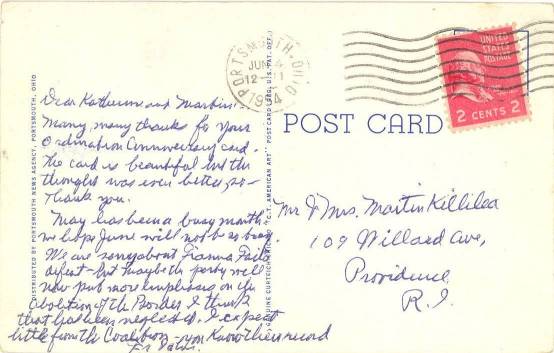 Dear Katherine and Martin:
Many, many thanks for your
Ordination Anniversary card.
The card is beautiful and the
thought was even better, so
Thank you.
May has been a busy month
we hope June will not be so busy
We are sorry about Fianna Fail's
defeat - but maybe the party will
now put more emphasis on the
Abolition of the Border. I think
that has been neglected. I expect
little from the Coalition - you know their record
Fr.
DISTRIBUTED BY PORTSMOUTH NEWS AGENCY, PORTSMOUTH, OHIO
"C.T. AMERICAN ART" POST CARD (REG. U.S. PAT. OFF.)
PORTSMOUTH, OHIO
JUN
12
1954
UNITED
STATES
POSTAGE
2 CENTS 2
POST CARD
Mr & Mrs. Martin Killilea
109 Willard Ave,
Providence
R.I.